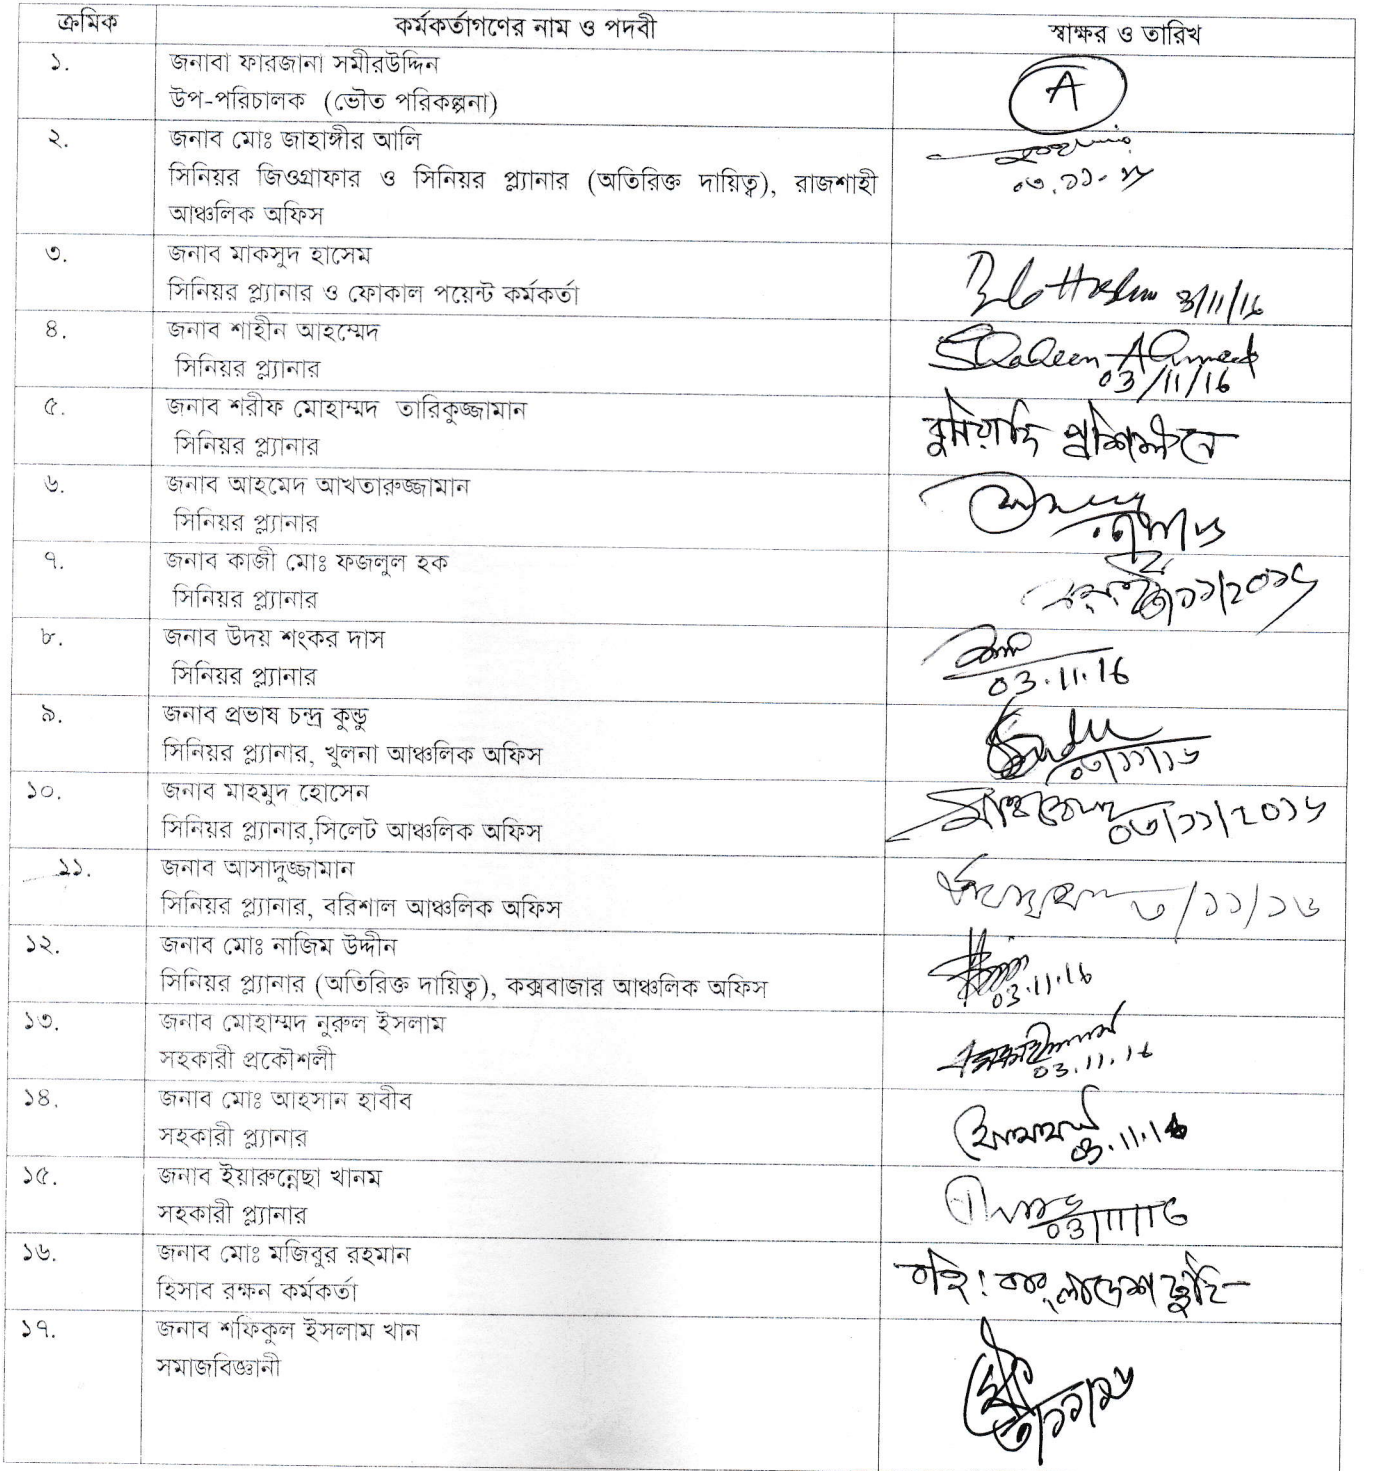 ক্রমিক কর্মকর্তাগণের নাম ও পদবী স্বাক্ষর ও তারিখ
১. জনাবা ফারজানা সমীরউদ্দিন
উপ-পরিচালক (ভৌত পরিকল্পনা)
A
২. জনাব মোঃ জাহাঙ্গীর আলি
সিনিয়র জিওগ্রাফার ও সিনিয়র প্ল্যানার (অতিরিক্ত দায়িত্ব), রাজশাহী
আঞ্চলিক অফিস
০৩.১১.১৬
৩. জনাব মাকসুদ হাসেম
সিনিয়র প্ল্যানার ও ফোকাল পয়েন্ট কর্মকর্তা
3/11/16
৪. জনাব শাহীন আহম্মেদ
সিনিয়র প্ল্যানার
Shaheen Ahmed
03/11/16
৫. জনাব শরীফ মোহাম্মদ তারিকুজ্জামান
সিনিয়র প্ল্যানার
বুনিয়াদি প্রশিক্ষনে
৬. জনাব আহমেদ আখতারুজ্জামান
সিনিয়র প্ল্যানার
৭. জনাব কাজী মোঃ ফজলুল হক
সিনিয়র প্ল্যানার
৩/১১/২০১৬
৮. জনাব উদয় শংকর দাস
সিনিয়র প্ল্যানার
03.11.16
৯. জনাব প্রভাষ চন্দ্র কুন্ডু
সিনিয়র প্ল্যানার, খুলনা আঞ্চলিক অফিস
০৩/১১/১৬
১০. জনাব মাহমুদ হোসেন
সিনিয়র প্ল্যানার,সিলেট আঞ্চলিক অফিস
০৩/১১/২০১৬
১১. জনাব আসাদুজ্জামান
সিনিয়র প্ল্যানার, বরিশাল আঞ্চলিক অফিস
৩/১১/১৬
১২. জনাব মোঃ নাজিম উদ্দীন
সিনিয়র প্ল্যানার (অতিরিক্ত দায়িত্ব), কক্সবাজার আঞ্চলিক অফিস
03.11.16
১৩. জনাব মোহাম্মদ নুরুল ইসলাম
সহকারী প্রকৌশলী
03.11.16
১৪. জনাব মোঃ আহসান হাবীব
সহকারী প্ল্যানার
03.11.16
১৫. জনাব ইয়ারুন্নেছা খানম
সহকারী প্ল্যানার
03/11/16
১৬. জনাব মোঃ মজিবুর রহমান
হিসাব রক্ষন কর্মকর্তা
বহি: বাংলাদেশ ছুটি
১৭. জনাব শফিকুল ইসলাম খান
সমাজবিজ্ঞানী
৩/১১/১৬